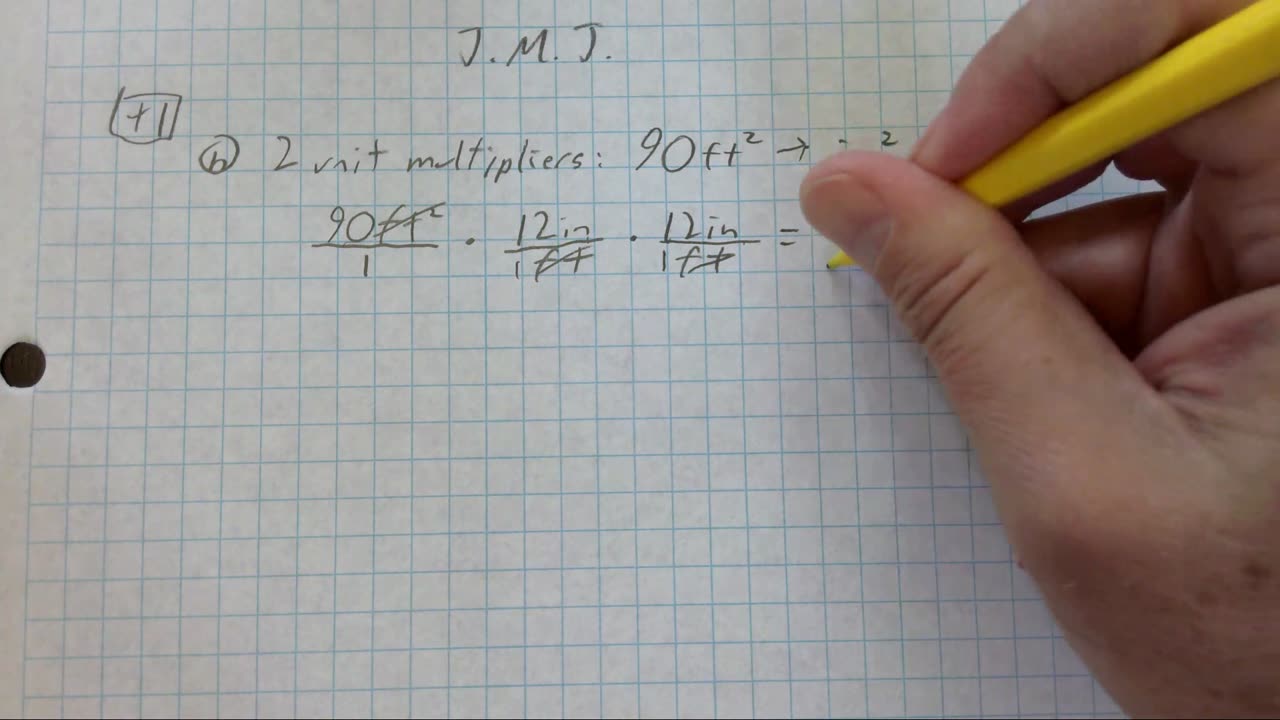 J.M.J.
+1
b 2 unit multipliers: 90ft² → ²
90ft²/1 · 12in/1ft · 12in/1ft =